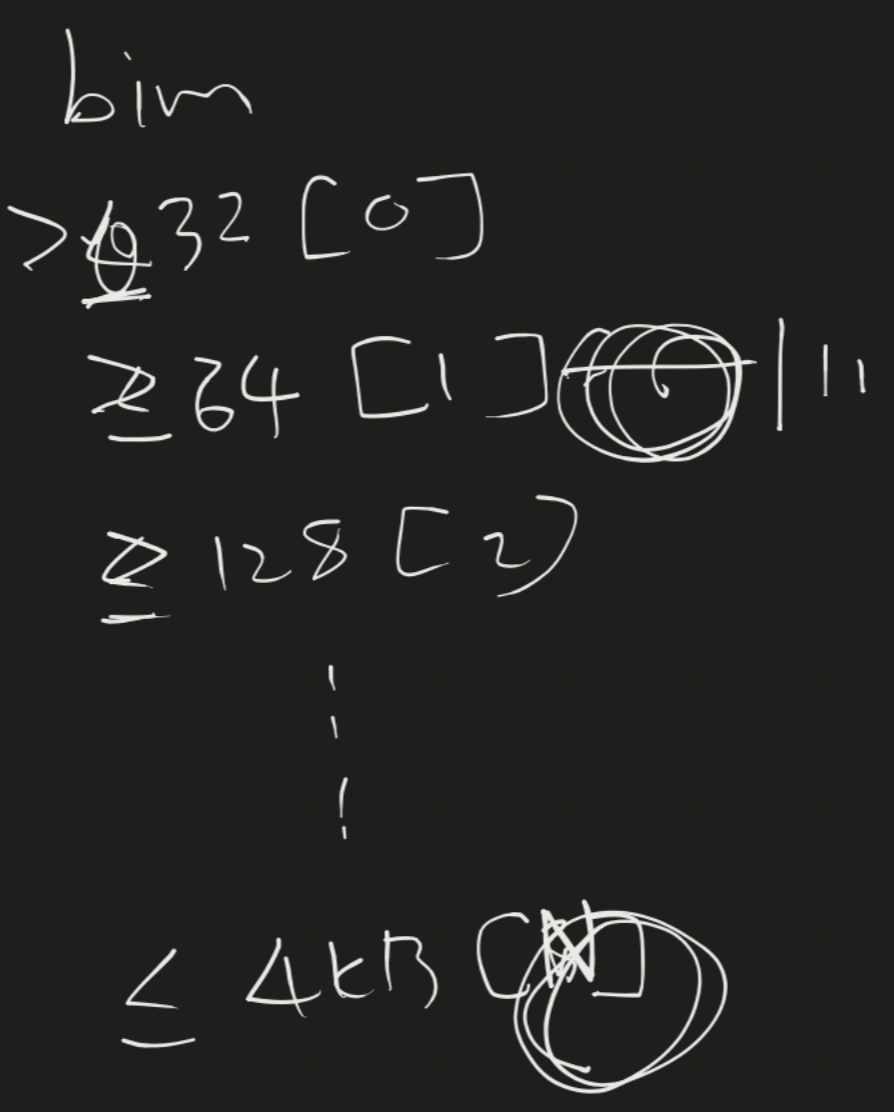 bim
> 32 [0]
≥ 64 [1]
≥ 128 [2)
≤ 4kB [N]